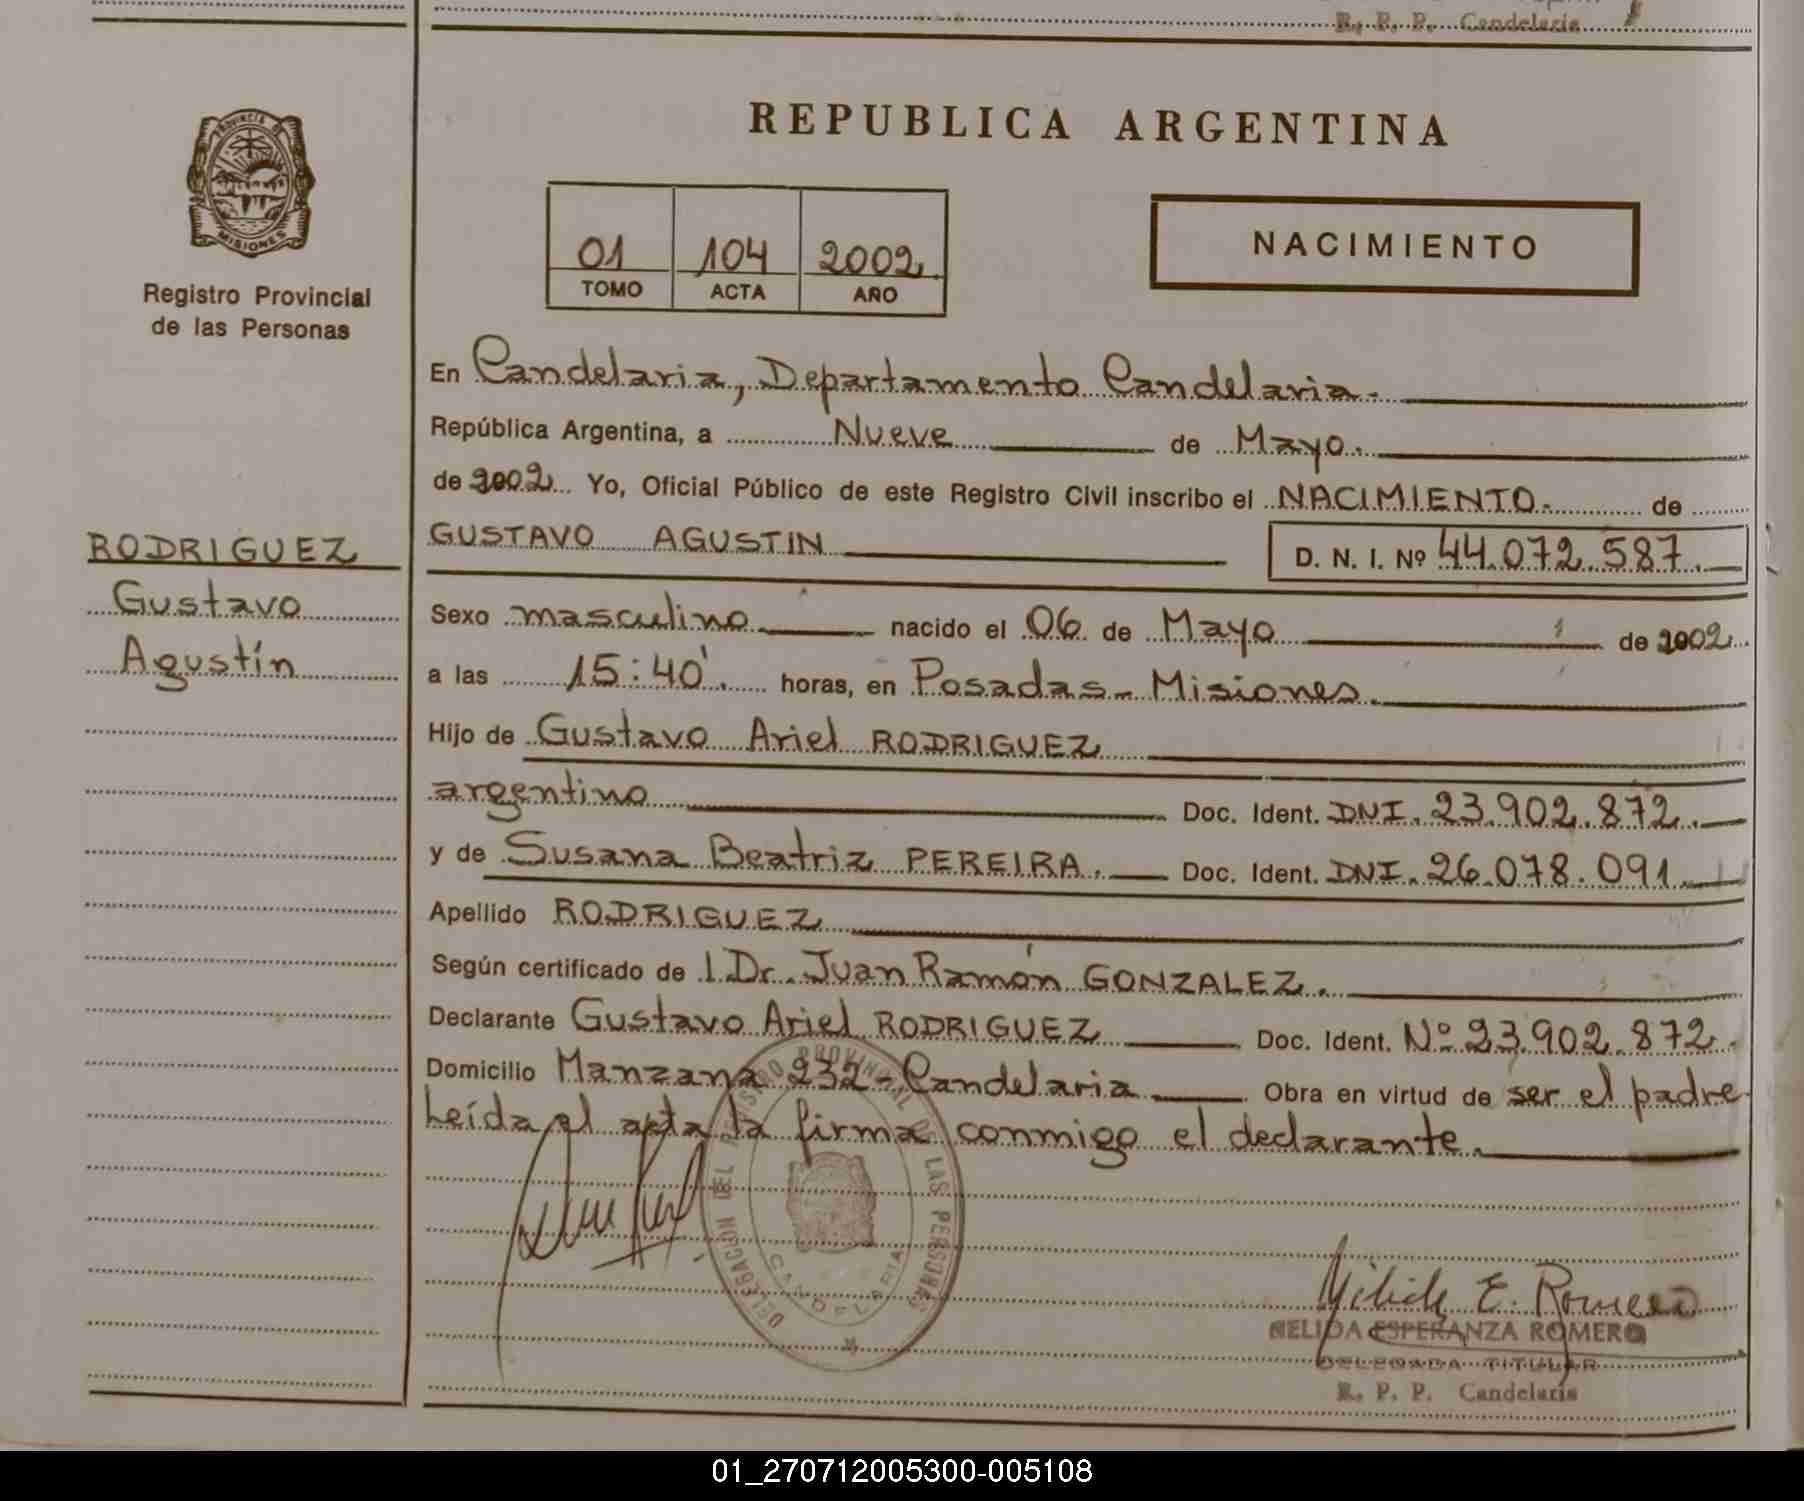 R. P. P. Candelaria
REPUBLICA ARGENTINA
PROVINCIA DE
MISIONES
Registro Provincial
de las Personas
01 104 2002.
TOMO ACTA AÑO
NACIMIENTO
En Candelaria, Departamento Candelaria.
República Argentina, a Nueve de Mayo.
de 2002 Yo, Oficial Público de este Registro Civil inscribo el NACIMIENTO. de
GUSTAVO AGUSTIN D. N. I. Nº 44.072.587.
RODRIGUEZ
Gustavo
Agustín
Sexo masculino nacido el 06 de Mayo de 2002
a las 15:40'. horas, en Posadas - Misiones.
Hijo de Gustavo Ariel RODRIGUEZ
argentino Doc. Ident. DNI. 23.902.872.
y de Susana Beatriz PEREIRA. Doc. Ident. DNI. 26.078.091.
Apellido RODRIGUEZ
Según certificado de l Dr. Juan Ramón GONZALEZ.
Declarante Gustavo Ariel RODRIGUEZ Doc. Ident. Nº 23.902.872.
Domicilio Manzana 232 - Candelaria Obra en virtud de ser el padre
Leída el acta la firma conmigo el declarante.
DELEGACION DEL REGISTRO PROVINCIAL DE LAS PERSONAS
CANDELARIA
E. Romero
NELIDA ESPERANZA ROMERO
DELEGADA TITULAR
R. P. P. Candelaria
01_270712005300-005108